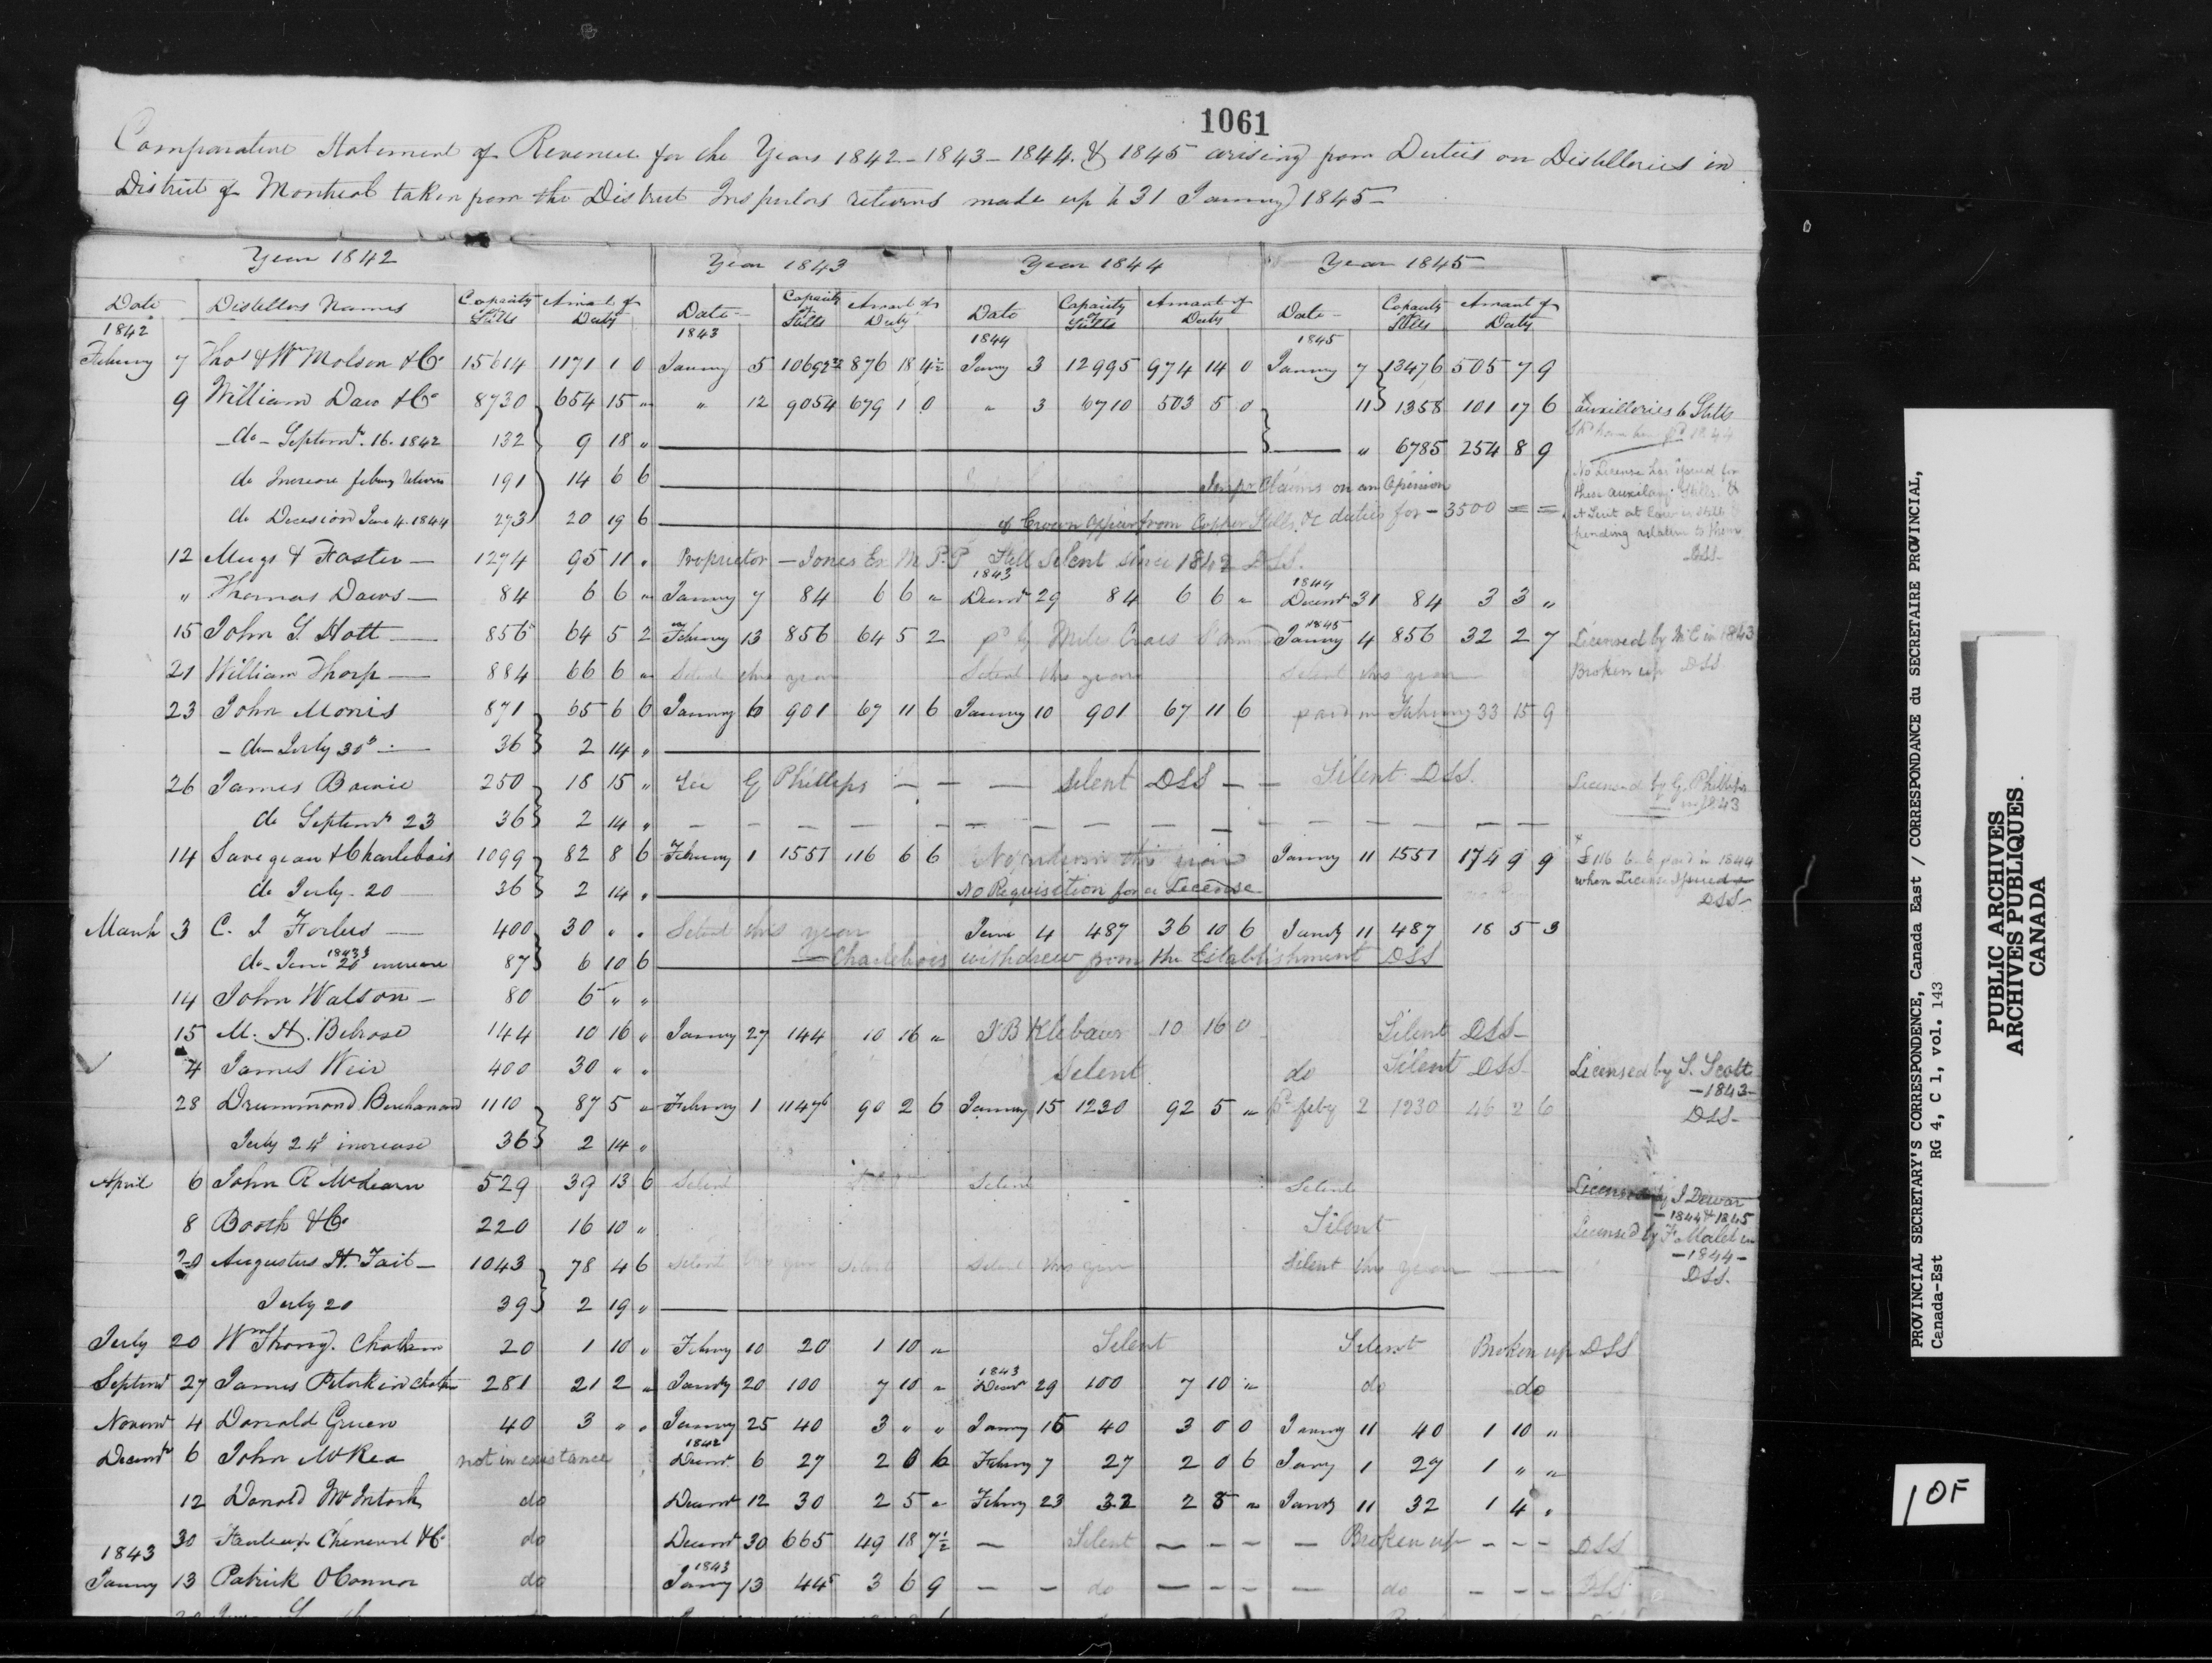 1061
Comparative Statement of Revenue for the Years 1842 - 1843 - 1844 & 1845 arising from Duties on Distilleries in
District of Montreal taken from the District Inspectors returns made up to 31 January 1845
Year 1842 Year 1843 Year 1844 Year 1845
Date Distillers Names Capacity of Stills Amount of Duty Date Capacity of Stills Amount of Duty Date Capacity of Stills Amount of Duty Date Capacity of Stills Amount of Duty
1842 1843 1844 1845
7 Thos & Wm Molson & Co 15614 1171 1 0 5 876 18 4½ 3 12995 974 14 0 7 13476 505 7 9
9 William Daw & Co 8730 654 15 " " 12 9054 679 1 0 " 3 6710 503 5 0 11 1358 101 17 6 auxilleries to Stills
do Septemr. 16. 1842 132 9 18 " " 6785 254 8 9
do Increase 191 14 6 6 Claims on an Opinion No License has for
do Decision June 4. 1844 273 20 19 6 of Crown from Copper Stills &c duties for - 3500 = = these auxilary Stills &
pending relative to them
12 & Foster 1274 95 11 " Proprietor - Jones Ex M.P.P Still Silent since 1842 DSS. DSS
" Thomas Daws 84 6 6 " 7 84 6 6 " 1843 29 84 6 6 " 1844 31 84 3 3 "
15 John S. Hott 856 64 5 2 13 856 64 5 2 Miles 1845 4 856 32 2 7 Licensed by in 1843
21 William Thorp 884 66 6 " Silent this year Silent this year Silent this year Broken up DSS
23 John Monis 871 65 6 6 6 901 67 11 6 10 901 67 11 6 paid in 33 15 9
do July 30 36 2 14 "
26 James 250 18 15 " See G Phillips Silent DSS Silent DSS. Licensed by G. Phillips
in 1843
do Septemr 23 36 2 14 "
14 & Charlebois 1099 82 8 6 1 1551 116 6 6 No return this year 11 1551 174 9 9 £116 6 6 paid in 1844
do July 20 36 2 14 " No Requisition for a License when License DSS
March 3 C. I Forbes 400 30 " " Silent this year June 4 487 36 10 6 11 487 18 5 3
do June 20 1843 increase 87 6 10 6 Charlebois withdrew from the Establishment DSS
14 John Watson 80 6 " "
15 M. H. Belrose 144 10 16 " 27 144 10 16 " 10 16 0 Silent DSS
4 James Weir 400 30 " " Silent do Silent DSS Licensed by S. Scott
- 1843 -
28 Drummond Buchanan 1110 87 5 " 1 90 2 6 15 1230 92 5 " pd feby 2 1230 46 2 6 DSS
July 24 increase 36 2 14 "
April 6 John R 529 39 13 6 Silent Silent Silent Licensed by J Dewar
- 1844 & 1845
8 Booth & Co 220 16 10 " Silent Licensed by F. Malet in
- 1844 -
20 Augustus H. Tait 1043 78 4 6 Silent this year Silent this year Silent this year DSS.
July 20 39 2 19 "
July 20 Wm Chatham 20 1 10 " 10 20 1 10 " Silent Silent Broken up DSS
27 James 281 21 2 " 20 100 7 10 " 1843 29 100 7 10 " do do
4 Donald Green 40 3 " " 25 40 3 " " 15 40 3 0 0 11 40 1 10 "
6 John McRea not in existance 1842 6 27 2 0 6 7 27 2 0 6 1 27 1 " "
12 Donald McIntosh do 12 30 2 5 " 23 32 2 8 " 11 32 1 4 "
30 & Co do 30 665 49 18 7½ Silent Broken up DSS
1843
13 Patrick OConnor do 1843 13 3 6 9 do do DSS
PROVINCIAL SECRETARY'S CORRESPONDENCE, Canada East / CORRESPONDANCE du SECRETAIRE PROVINCIAL,
Canada-Est RG 4, C 1, vol. 143
PUBLIC ARCHIVES
ARCHIVES PUBLIQUES
CANADA
1 OF